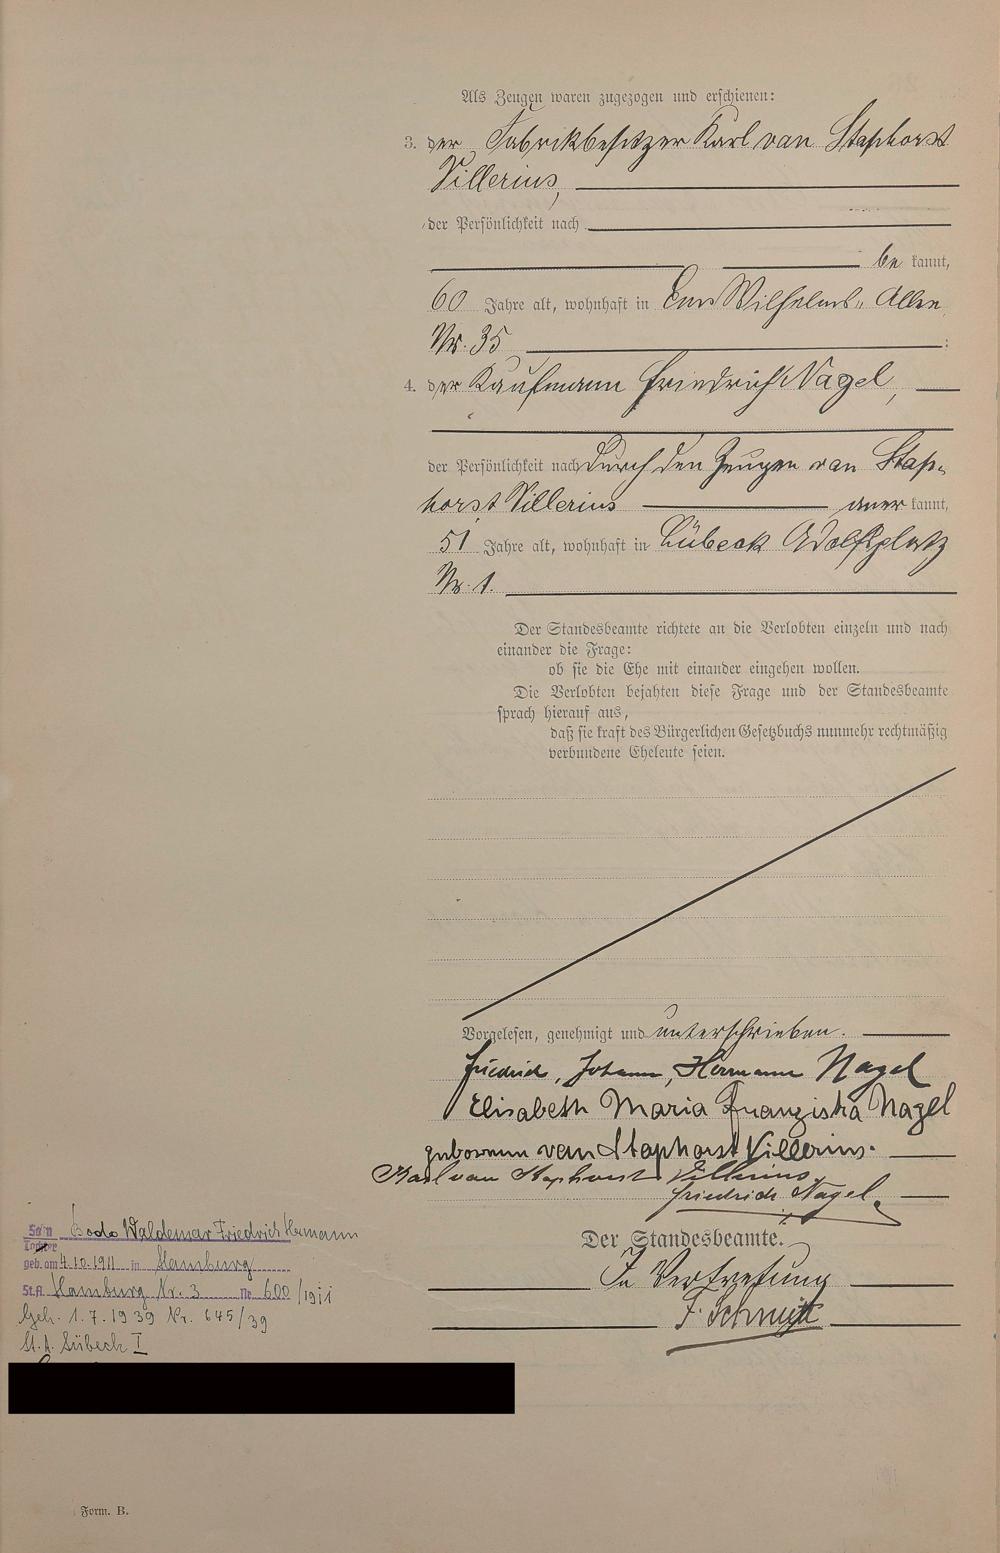 Als Zeugen waren zugezogen und erschienen:
3. der Fabrikbesitzer Karl van Staphorst
Villerius,
der Persönlichkeit nach
be kannt,
60 Jahre alt, wohnhaft in Ems Wilhelms-Allee
Nr. 35 ;
4. der Kaufmann Friedrich Nagel,
der Persönlichkeit nach durch den Zeugen van Stap-
horst Villerius aner kannt,
51 Jahre alt, wohnhaft in Lübeck Adolfplatz
Nr. 1.
Der Standesbeamte richtete an die Verlobten einzeln und nach
einander die Frage:
ob sie die Ehe mit einander eingehen wollen.
Die Verlobten bejahten diese Frage und der Standesbeamte
sprach hierauf aus,
daß sie kraft des Bürgerlichen Gesetzbuchs nunmehr rechtmäßig
verbundene Eheleute seien.
Vorgelesen, genehmigt und unterschrieben.
Friedrich, Johann, Hermann Nagel
Elisabeth Maria Franziska Nagel
geborenen van Staphorst Villerius.
Karl van Staphorst Villerius.
Friedrich Nagel.
Der Standesbeamte.
In Vertretung
F. Schmitt
Sohn Bodo Waldemar Friedrich Hermann
Tochter
geb. am 4.10.1911 in Hamburg
St.A. Hamburg Nr. 3 Nr. 600/1911
Geh. 1.7.1939 Nr. 645/39
St.A. Lübeck I
Form. B.